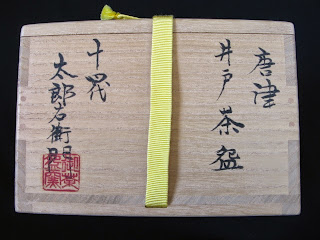 唐津
井戸茶盌
十四代
太郎右衛門